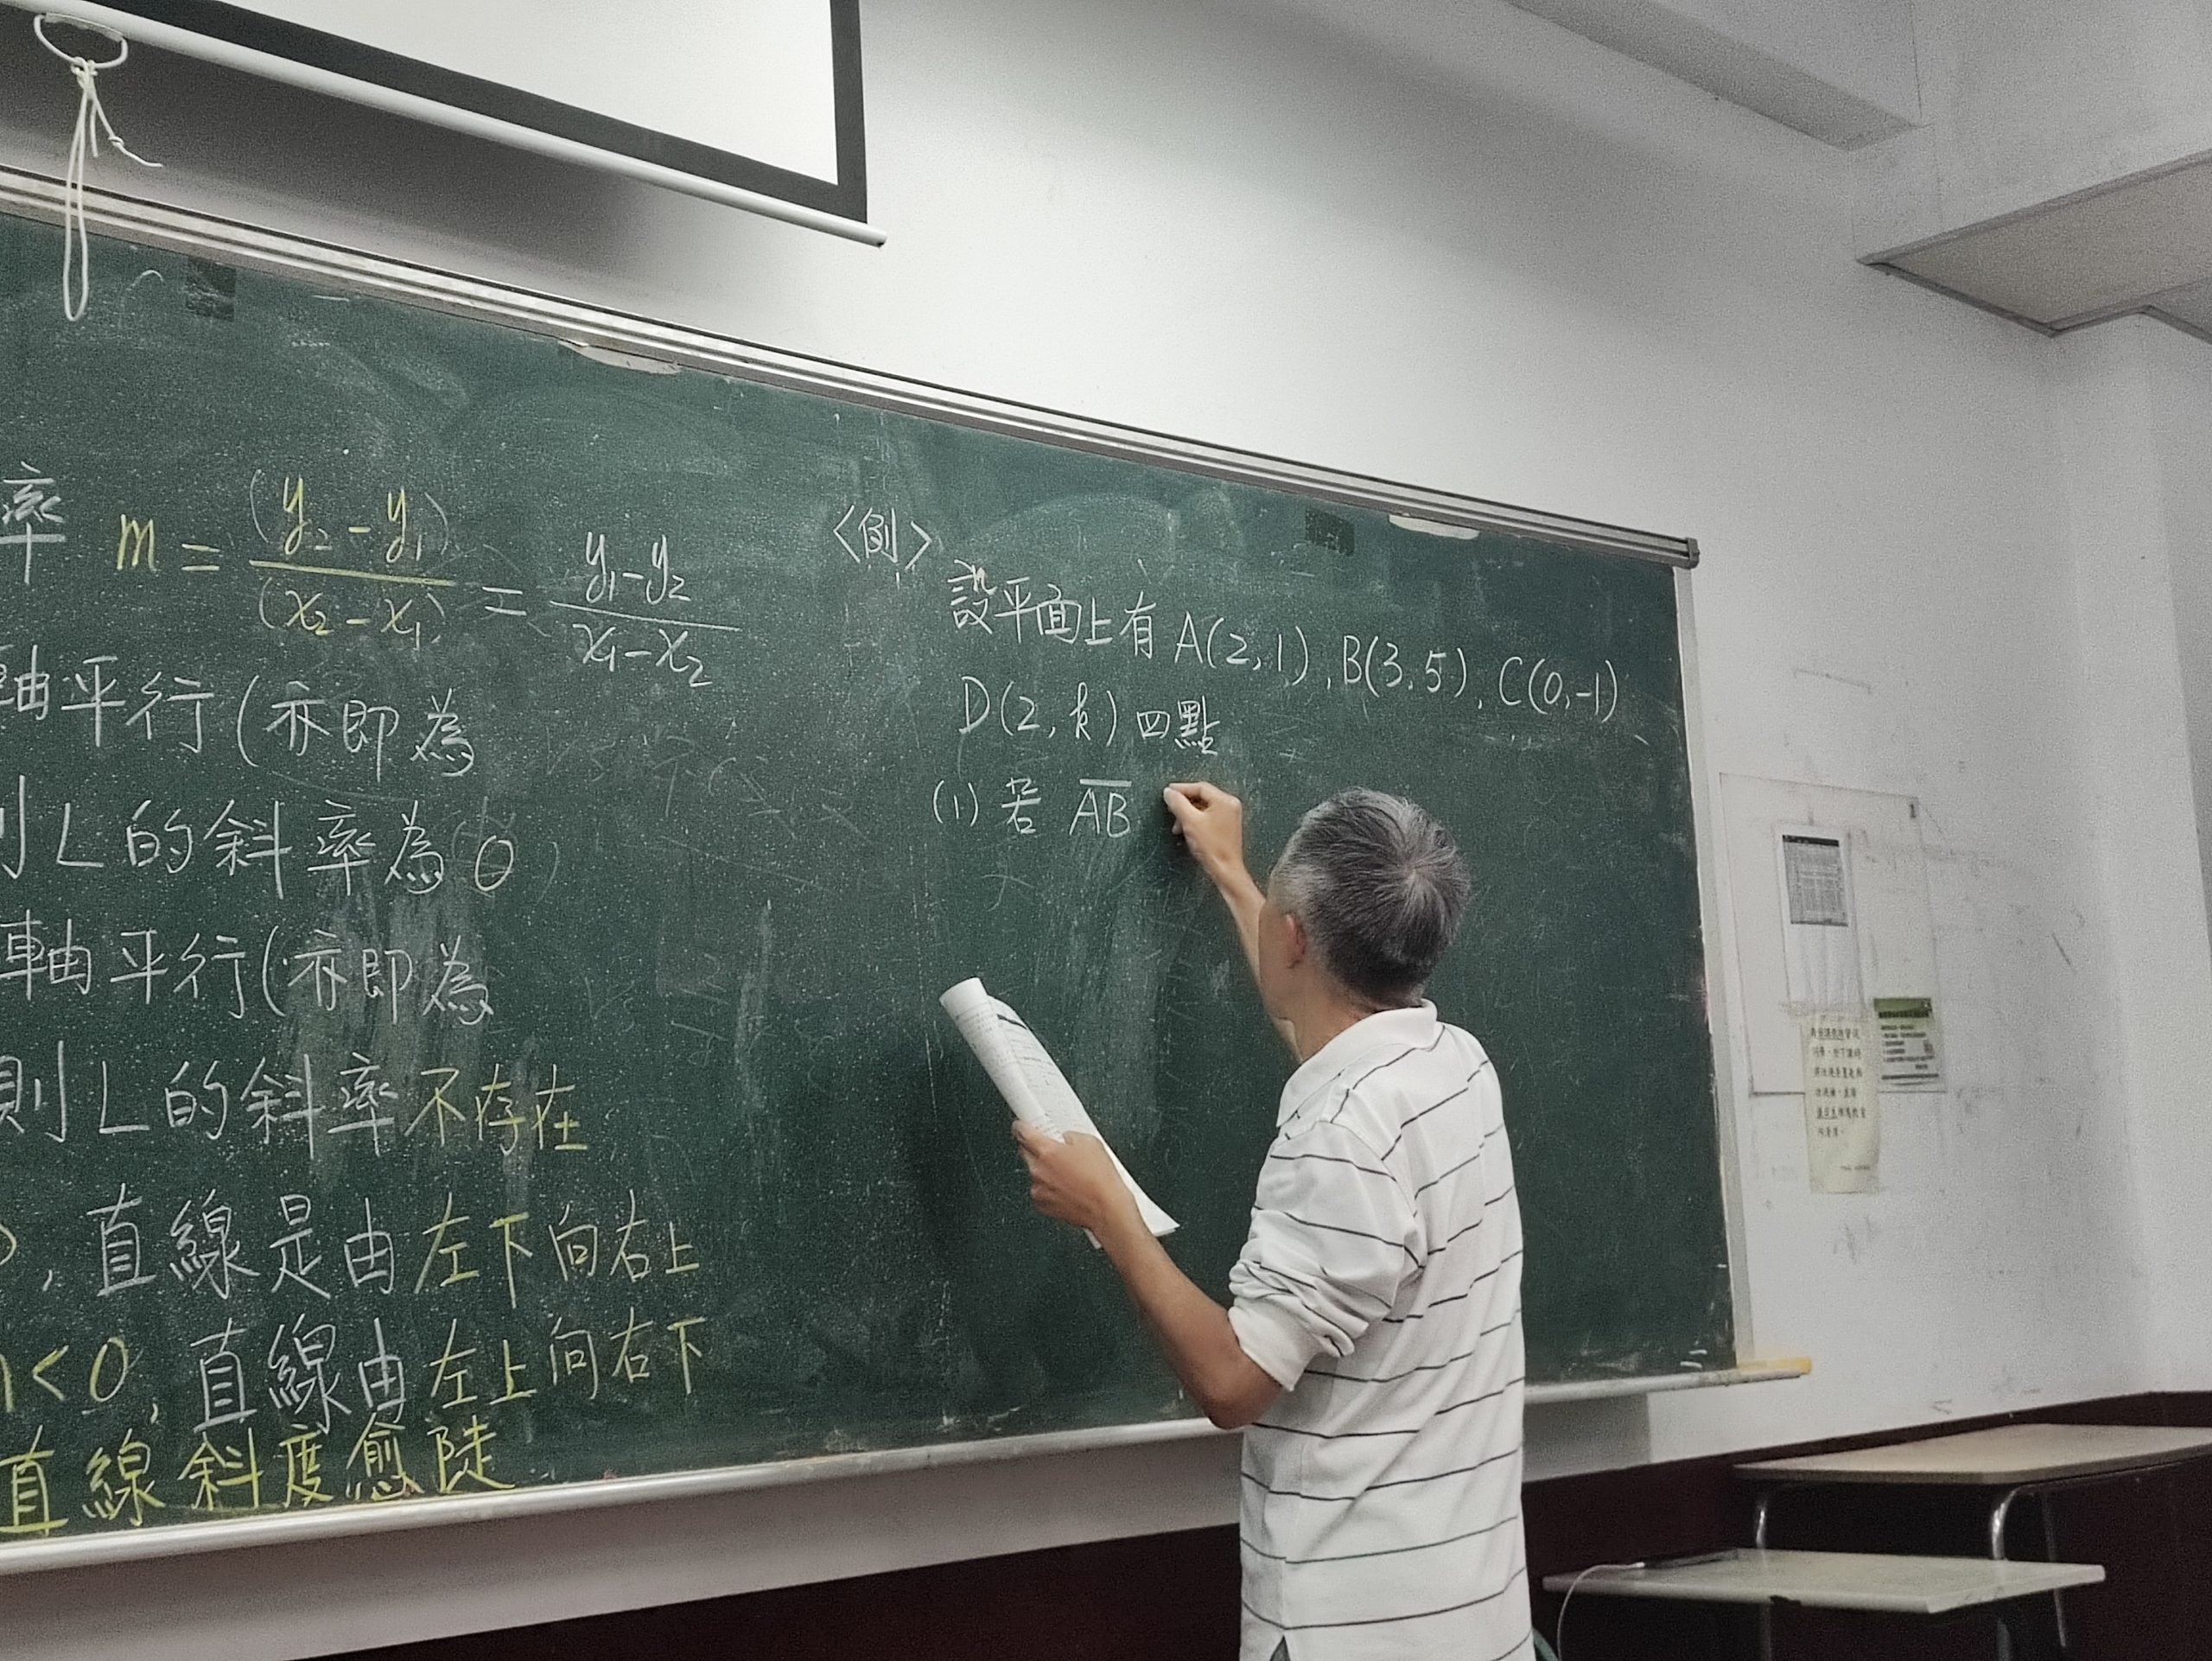 率 m = (y₂ - y₁) / (x₂ - x₁) = y₁ - y₂ / x₁ - x₂
軸平行(亦即為
則 L 的斜率為 0
軸平行(亦即為
則 L 的斜率不存在
, 直線是由左下向右上
<0, 直線由左上向右下
直線斜度愈陡
〈例〉
設平面上有 A(2,1), B(3,5), C(0,-1)
D(2,k) 四點
(1) 若 A̅B̅